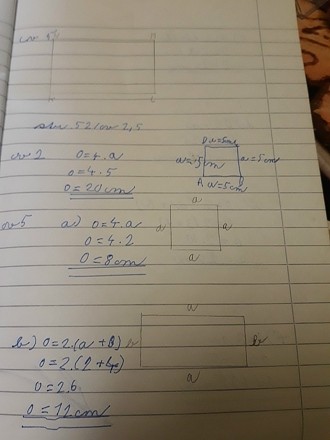 cv 1
str. 52/cv 2,5
cv 2 o=4.a
o=4.5
o=20cm
a=5cm
a=5cm a=5cm
A a=5cm
cv 5 a) o=4.a
o=4.2
o=8cm
a
a a
a
b) o=2.(a+b)
o=2.(2+4)
o=2.6
o=12cm
a
b b
a